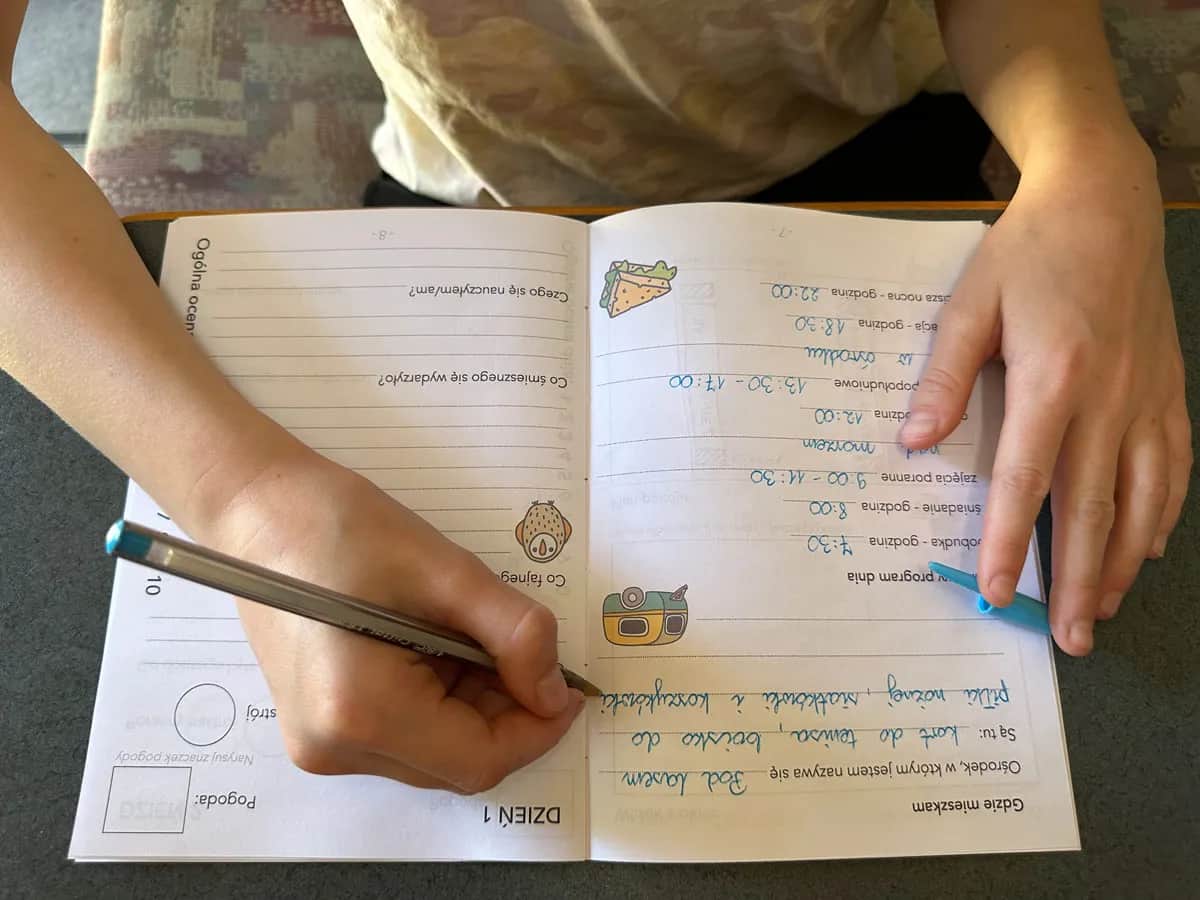 Gdzie mieszkam
Ośrodek, w którym jestem nazywa się Pod Lasem
Są tu: kort do tenisa, boisko do
piłki nożnej, siatkówki i koszykówki
program dnia
obudka - godzina 7:30
śniadanie - godzina 8:00
zajęcia poranne 9:00 - 11:30
nad morzem
12:00
popołudniowe 13:30 - 17:00
w ośrodku
acja - godzina 18:30
isza nocna - godzina 22:00
-7-
DZIEŃ 1
Pogoda:
Narysuj znaczek pogody
strój
Co fajneg
10
Co śmiesznego się wydarzyło?
Czego się nauczyłem/am?
Ogólna ocen
-8-